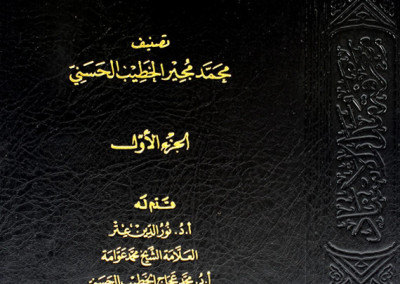 تصنيف
محمد مجير الخطيب الحسني
الجزء الأول
قدم له
أ.د. نور الدين عتر
العلامة الشيخ محمد عوامة
أ.د. محمد عجاج الخطيب الحسني